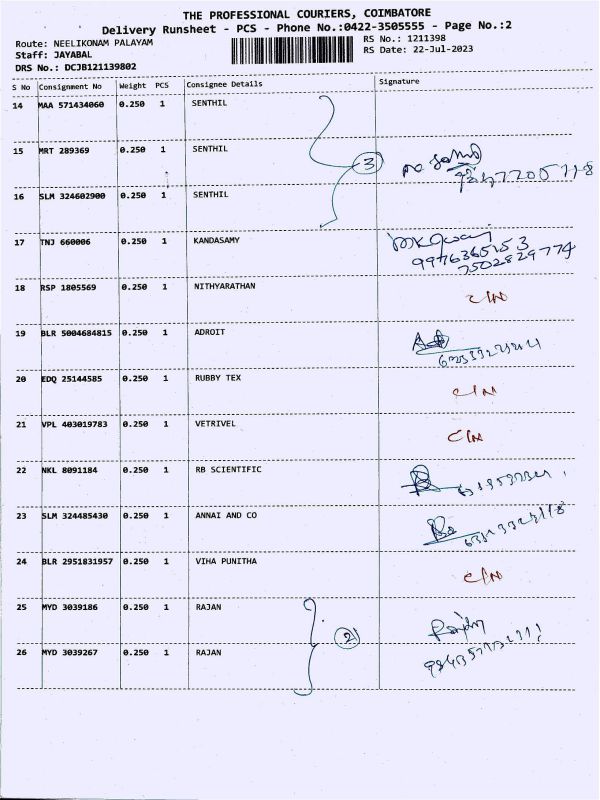 THE PROFESSIONAL COURIERS, COIMBATORE
Delivery Runsheet - PCS - Phone No.:0422-3505555 - Page No.:2
Route: NEELIKONAM PALAYAM
RS No.: 1211398
Staff: JAYABAL
RS Date: 22-Jul-2023
DRS No.: DCJB121139802
S No Consignment No Weight PCS Consignee Details Signature
14 MAA 571434060 0.250 1 SENTHIL
15 MRT 289369 0.250 1 SENTHIL
3
16 SLM 324602900 0.250 1 SENTHIL
17 TNJ 660006 0.250 1 KANDASAMY
9976365153
7502829774
18 RSP 1805569 0.250 1 NITHYARATHAN C/N
19 BLR 5004684815 0.250 1 ADROIT
20 EDQ 25144585 0.250 1 RUBBY TEX C/N
21 VPL 403019783 0.250 1 VETRIVEL C/N
22 NKL 8091184 0.250 1 RB SCIENTIFIC
23 SLM 324485430 0.250 1 ANNAI AND CO
24 BLR 2951831957 0.250 1 VIHA PUNITHA C/N
25 MYD 3039186 0.250 1 RAJAN
2
26 MYD 3039267 0.250 1 RAJAN